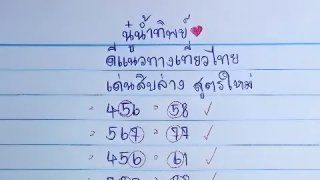 นู๋น้ำทิพย์
ดีแนวทางเที่ยวไทย
เด่นสิบล่าง สูตรใหม่
456 58 ✓
567 77 ✓
456 61 ✓